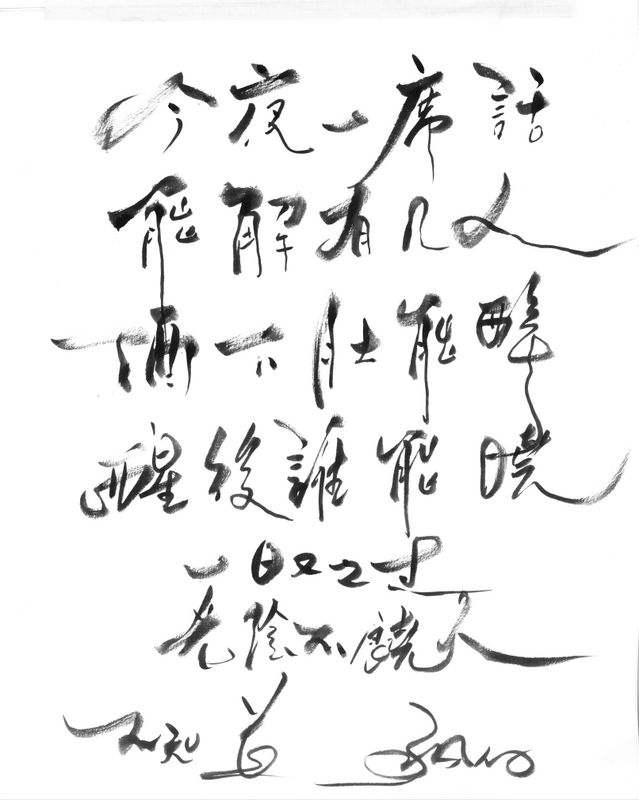 今夜一席話
能解有几人
酒下肚能醉
醒後誰能曉
一日又已过
光陰不饒人
不知道